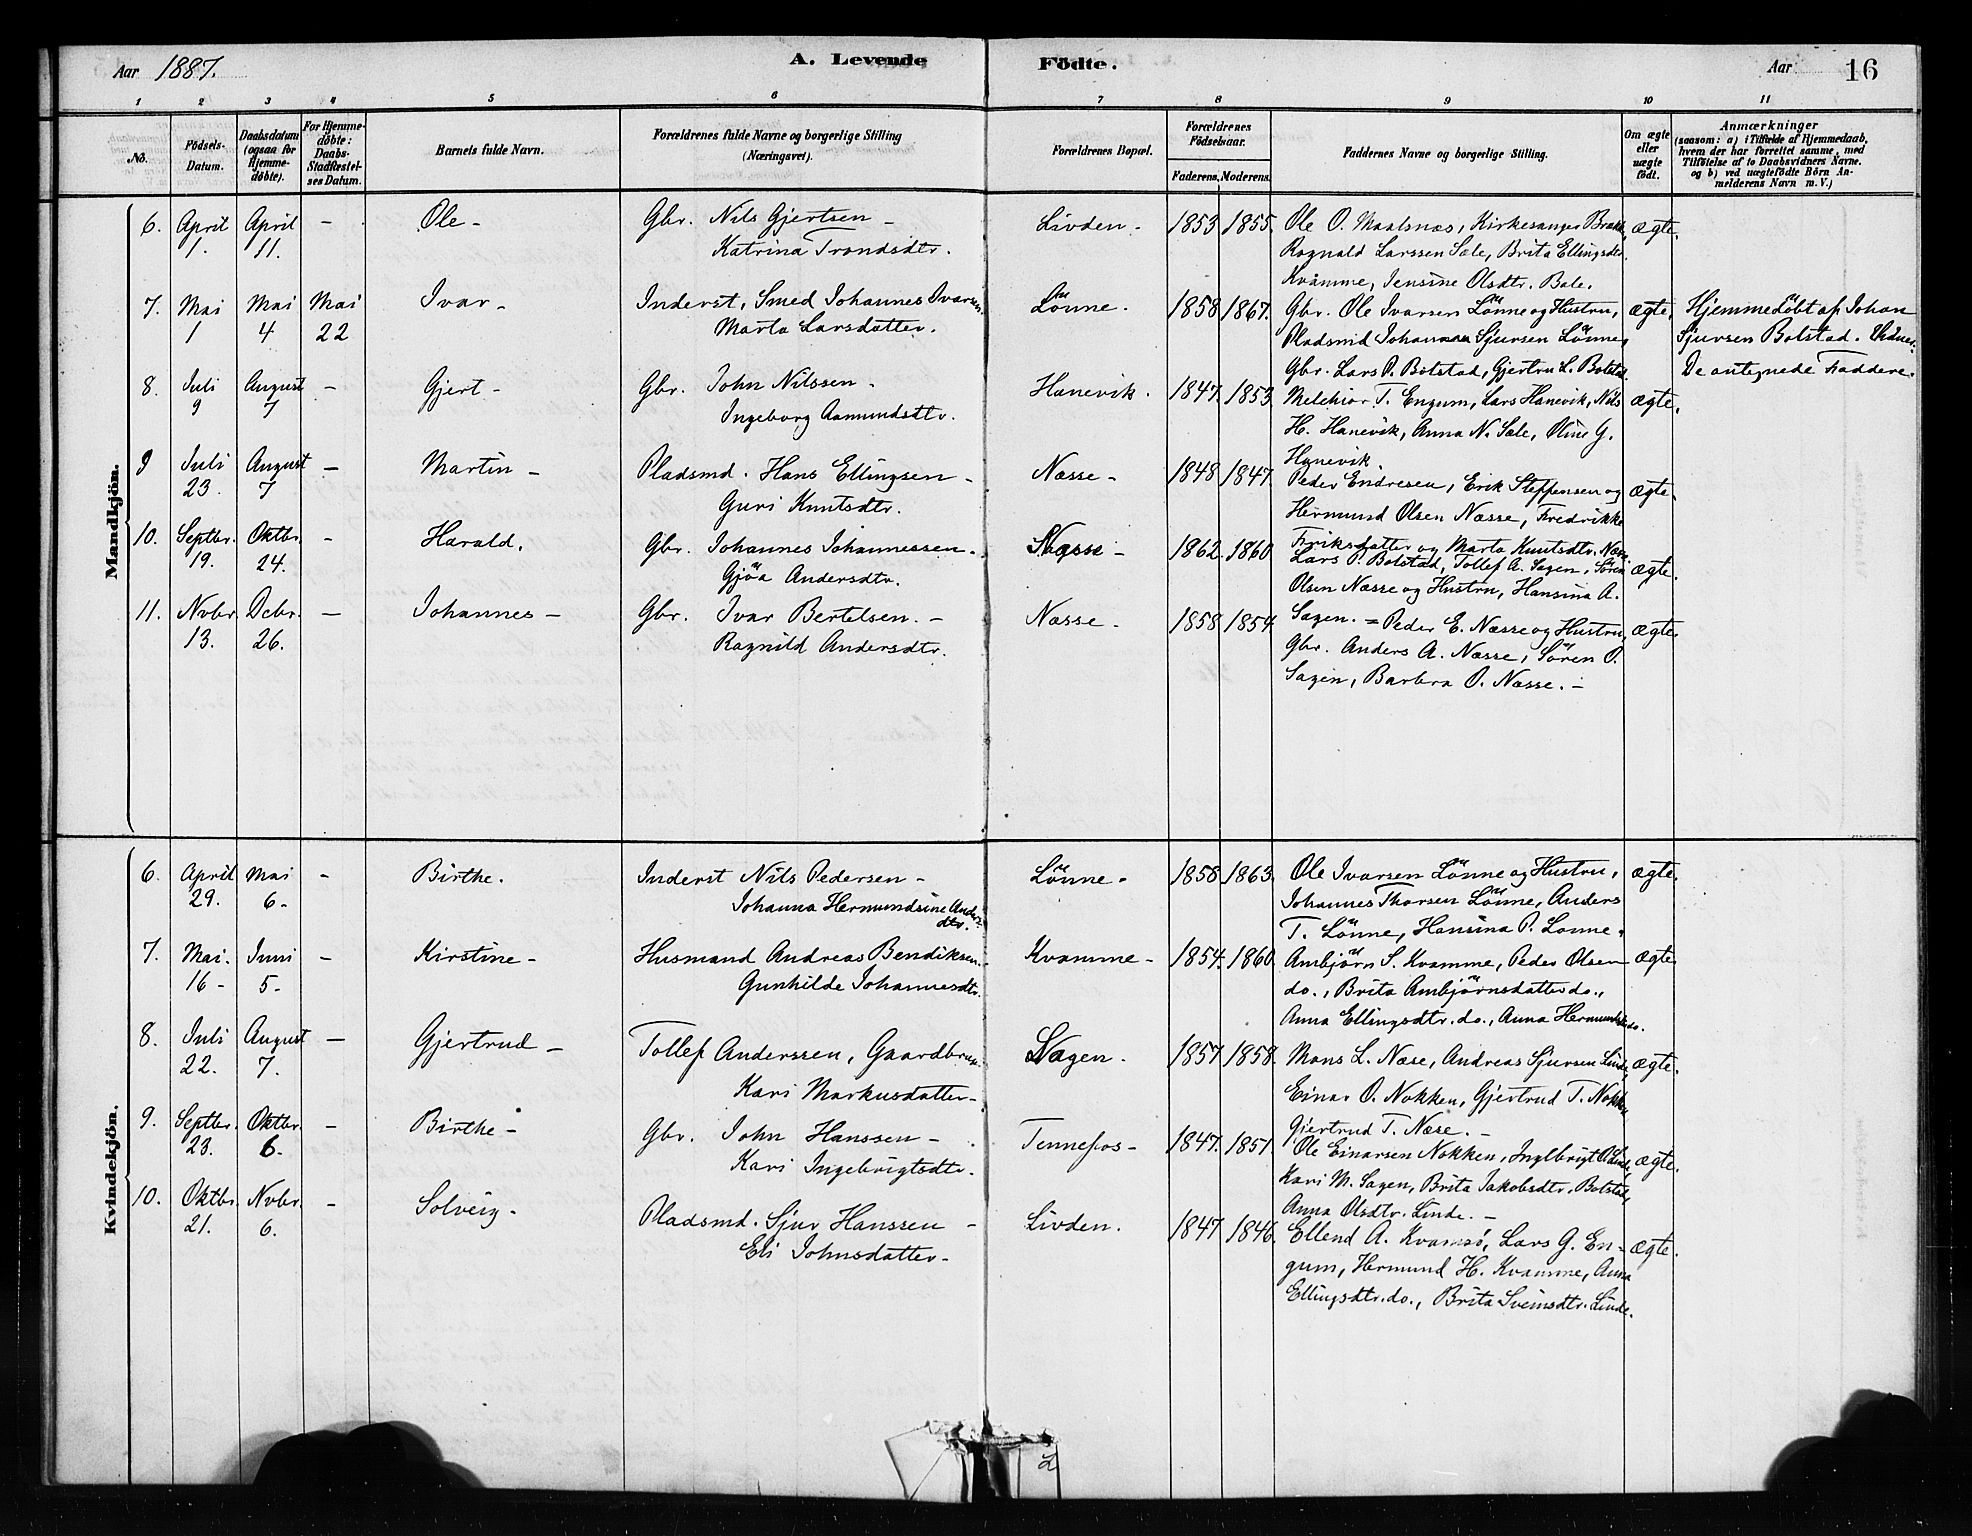 Aar 1887. A. Levende Födte. Aar 16
1 2 3 4 5 6 7 8 9 10 11
No. Födsels-Datum. Daabsdatum (ogsaa for Hjemme-döbte). For Hjemme-döbte: Daabs-Stadfæstel-ses Datum. Barnets fulde Navn. Forældrenes fulde Navne og borgerlige Stilling (Næringsvei). Forældrenes Bopæl. Forældrenes Födselsaar. Faderens. Moderens. Faddernes Navne og borgerlige Stilling. Om ægte eller uægte födt. Anmærkninger (saasom: a) i Tilfælde af Hjemmedaab, hvem der har forrettet samme, med Tilföielse af to Daabsvidners Navne. og b) ved uægtefödte Börn An-melderens Navn m. V.)
Mandkjön.
6. April April - Ole - Gbr. Nils Gjertsen - Livden - 1853 1855. Ole O. Maalsnæs, Kirkesanger Brække, ægte.
1. 11. Katrina Trondsdtr. Ragnald Larssen Sæle, Brita Ellingsdtr.
Kvamme, Jensine Olsdtr. Bale.
7. Mai Mai Mai Ivar - Inderst, Smed Johannes Ivarsen Lönne. 1858 1867. Gbr. Ole Ivarsen Lönne og Hustru, ægte. Hjemmedöbt af Johan
1 4 22 Marta Larsdatter. Pladsmd Johannes Sjursen Lönne, Sjursen Bolstad. Vidner
Gbr. Lars P. Bolstad, Gjertru L. Bolstad. De antegnede Faddere.
8. Juli August - Gjert - Gbr. John Nilssen - Hanevik. 1847. 1853 Melchior T. Engum, Lars Hanevik, Nils ægte.
9 7 Ingeborg Aamundsdtr. H. Hanevik, Anna N. Sæle, Oline G.
Hanevik.
9 Juli August - Martin - Pladsmd. Hans Ellingsen - Næsse - 1848 1847. Peder Endresen, Erik Steffensen og ægte.
23. 7 Guri Knutsdtr. Hermund Olsen Næsse, Fredrikke
Eriksdatter og Marta Knutsdtr. Næsse
10. Septbr. Oktbr. - Harald. Gbr. Johannes Johannessen - Næsse - 1862. 1860 Lars P. Bolstad, Tollef A. Sagen, Sören ægte.
19. 24. Gjöa Andersdtr. Olsen Næsse og Hustru, Hansina A.
Sagen. =
11. Novbr. Decbr. - Johannes - Gbr. Ivar Bertelsen. - Næsse. 1858 1854 Peder E. Næsse og Hustru, ægte
13. 26. Ragnild Andersdtr. Gbr. Anders A. Næsse, Sören P.
Sagen, Barbra O. Næsse. -
Kvindekjön.
6. April Mai - Birthe. Inderst Nils Pedersen - Lönne - 1858 1863. Ole Ivarsen Lönne og Hustru, ægte.
29. 6 - Johanna Hermundsine Anders- Johannes Thorsen Lönne, Anders
dtr. T. Lönne, Hansina P. Lönne.
7. Mai. Juni - Kirstine - Husmand Andreas Bendiksen. Kvamme - 1854. 1860 Ambjörn S. Kvamme, Peder Olsen ægte
16 - 5 - Gunhilde Johannesdtr. do., Brita Ambjörnsdatter do.,
Anna Ellingsdtr. do., Anna Hermundsdtr do.
8. Juli August - Gjertrud - Tollef Anderssen, Gaardbrug. Sagen. 1857. 1858. Mons L. Næse, Andreas Sjursen Linde, ægte.
22. 7. Kari Markusdatter - Einar O. Nokken, Gjertrud T. Nokken
Gjertrud T. Næse. -
9. Septbr. Oktbr. - Birthe - Gbr. John Hanssen - Tennefos - 1847. 1851. Ole Einarsen Nokken, Ingebrigt O. Linde, ægte.
23. 6 - Kari Ingebrigtsdtr. Kari M. Sagen, Brita Jakobsdtr. Bolstad,
Anna Olsdtr. Linde. -
10. Oktbr. Novbr. - Solveig - Pladsmd. Sjur Hanssen - Livden. 1847 1846. Ellend A. Kvamsö, Lars G. En- ægte.
21. 6. Eli Johnsdatter - gum, Hermund H. Kvamme, Anna
Ellingsdtr. do., Brita Sveinsdtr. Linde.